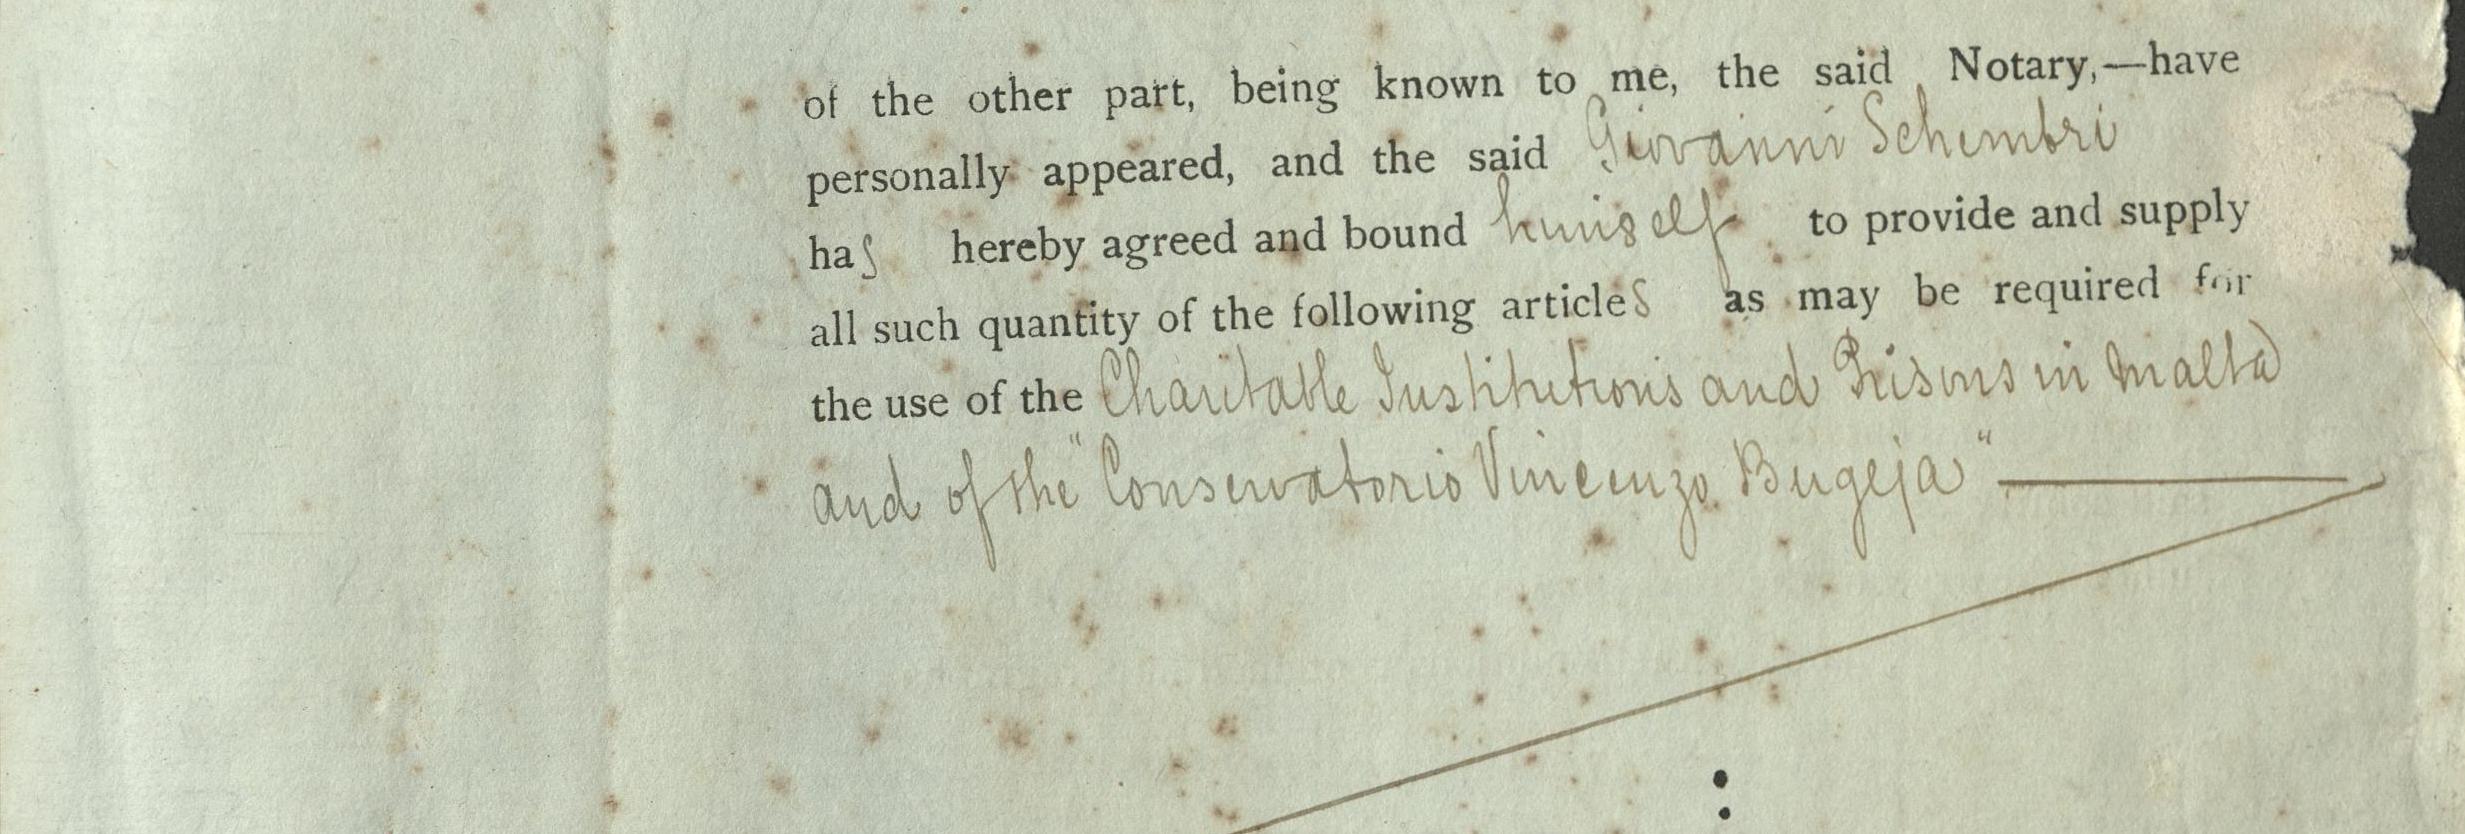 of the other part, being known to me, the said Notary,—have
personally appeared, and the said Giovanni Schembri
has hereby agreed and bound himself to provide and supply
all such quantity of the following articles as may be required for
the use of the Charitable Institutions and Prisons in Malta
and of the "Conservatorio Vincenzo Bugeja"
: